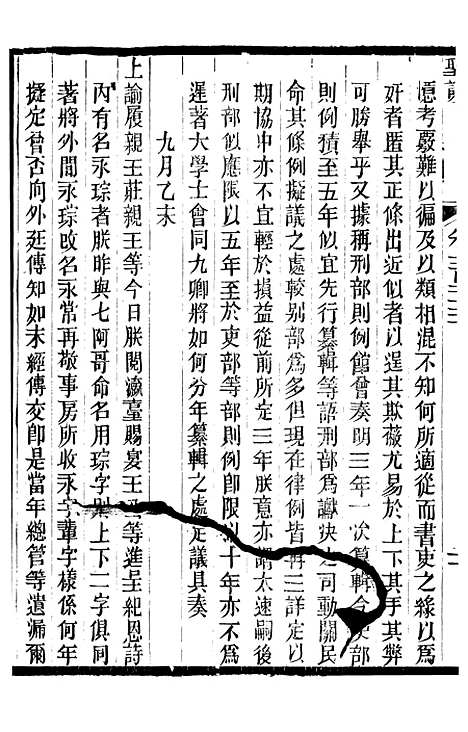 聖訓
憶考覈難以徧及以類相混不知何所適從而書吏之緣以爲
奸者匿其正條出近似者以逞其欺蔽尤易於上下其手其弊
可勝舉乎又據稱刑部則例館曾奏明三年一次纂輯今吏部
則例積至五年似宜先行纂輯等語刑部爲讞決之司動關民
命其條例擬議之處較別部爲多但現在律例皆再三詳定以
期協中亦不宜輕於損益從前所定三年朕意亦謂太速嗣後
刑部似應限以五年至於吏部等部則例卽限以十年亦不爲
遲著大學士會同九卿將如何分年纂輯之處定議具奏
九月乙未
上諭履親王莊親王等今日朕閱瀛臺賜宴王等進呈紀恩詩
內有名永琮者朕昨與七阿哥命名用琮字則上下二字俱同
著將外間永琮改名永常再敬事房所收永字輩字樣係何年
擬定曾否向外廷傳知如未經傳交卽是當年總管等遺漏爾